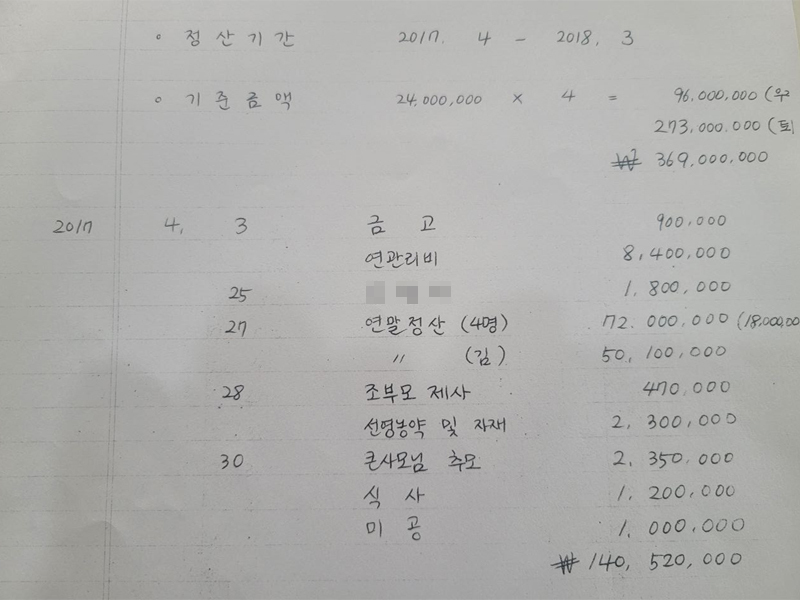 • 정산기간 2017. 4 - 2018. 3
• 기준금액 24,000,000 × 4 = 96.000,000 (우
273,000.000 (퇴
₩ 369,000,000
2017 4. 3 금고 900,000
연관리비 8,400,000
25 1,800,000
27 연말정산 (4명) 72.000,000 (18,000,00
〃 (김) 50,100,000
28 조부모 제사 470,000
선영농약 및 자재 2,300,000
30 큰사모님 추모 2,350,000
식사 1,200,000
미공 1,000,000
₩ 140,520,000